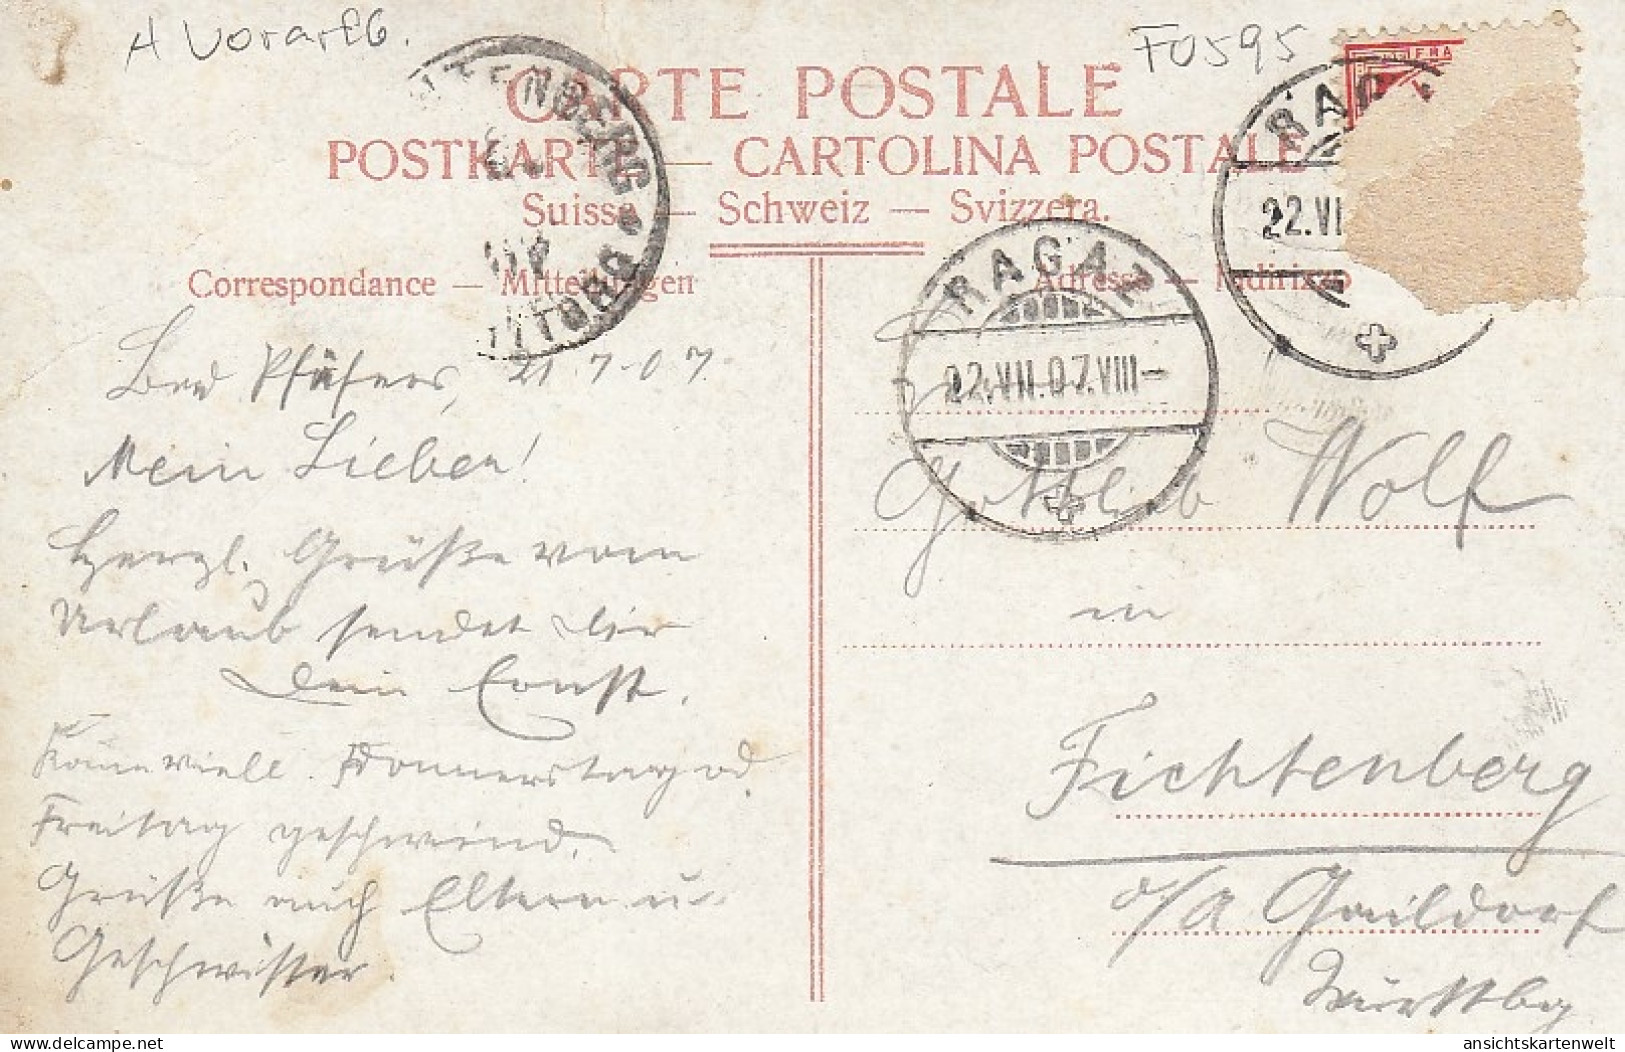 A Vorarlb.
F0595
CARTE POSTALE
POSTKARTE — CARTOLINA POSTALE
Suisse — Schweiz — Svizzera.
Correspondance — Mitteilungen
Adresse — Indirizzo
RAGAZ
22.VII.07.VIII–
RAG
22.VI
07
Bad Pfäfers, 21.7.07.
Mein Lieber!
Herzl. Grüße vom
Urlaub sendet Dir
Dein Ernst.
Donnerstag od.
Freitag geschwind.
Grüße auch Eltern u.
Geschwister.
Gottlieb Wolf
in
Fichtenberg
o/A Gaildorf
Württbg
ansichtskartenwelt